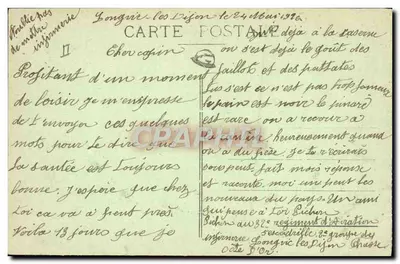 N'oublie pas
de mettre
infirmerie
Longvic-les-Dijon le 24 Mai 1926
CARTE POSTALE
II
Cher copain
Profitant d'un moment
de loisir je m'empresse
de t'envoyer ces quelques
mots pour te dire que
la santée est toujours
bonne. J'espère que chez
toi ca va a peut près.
Voila 13 jours que je
suis déjà a la caserne
on s'est déjà le goût des
faillots et des patates
c'est ce n'est pas trop fameux
le pain est noir le pinard
est rare on a recours a
la cantine, heureusement quand
on a du frère je te écrirais
fait moi réponse
et raconte moi un peut les
nouveaux du pays. Un ami
qui pense a toi
au 32e régiment d'aviation
infirmerie escadrille 8e groupe de
Longvic les Dijon
Côte D'Or